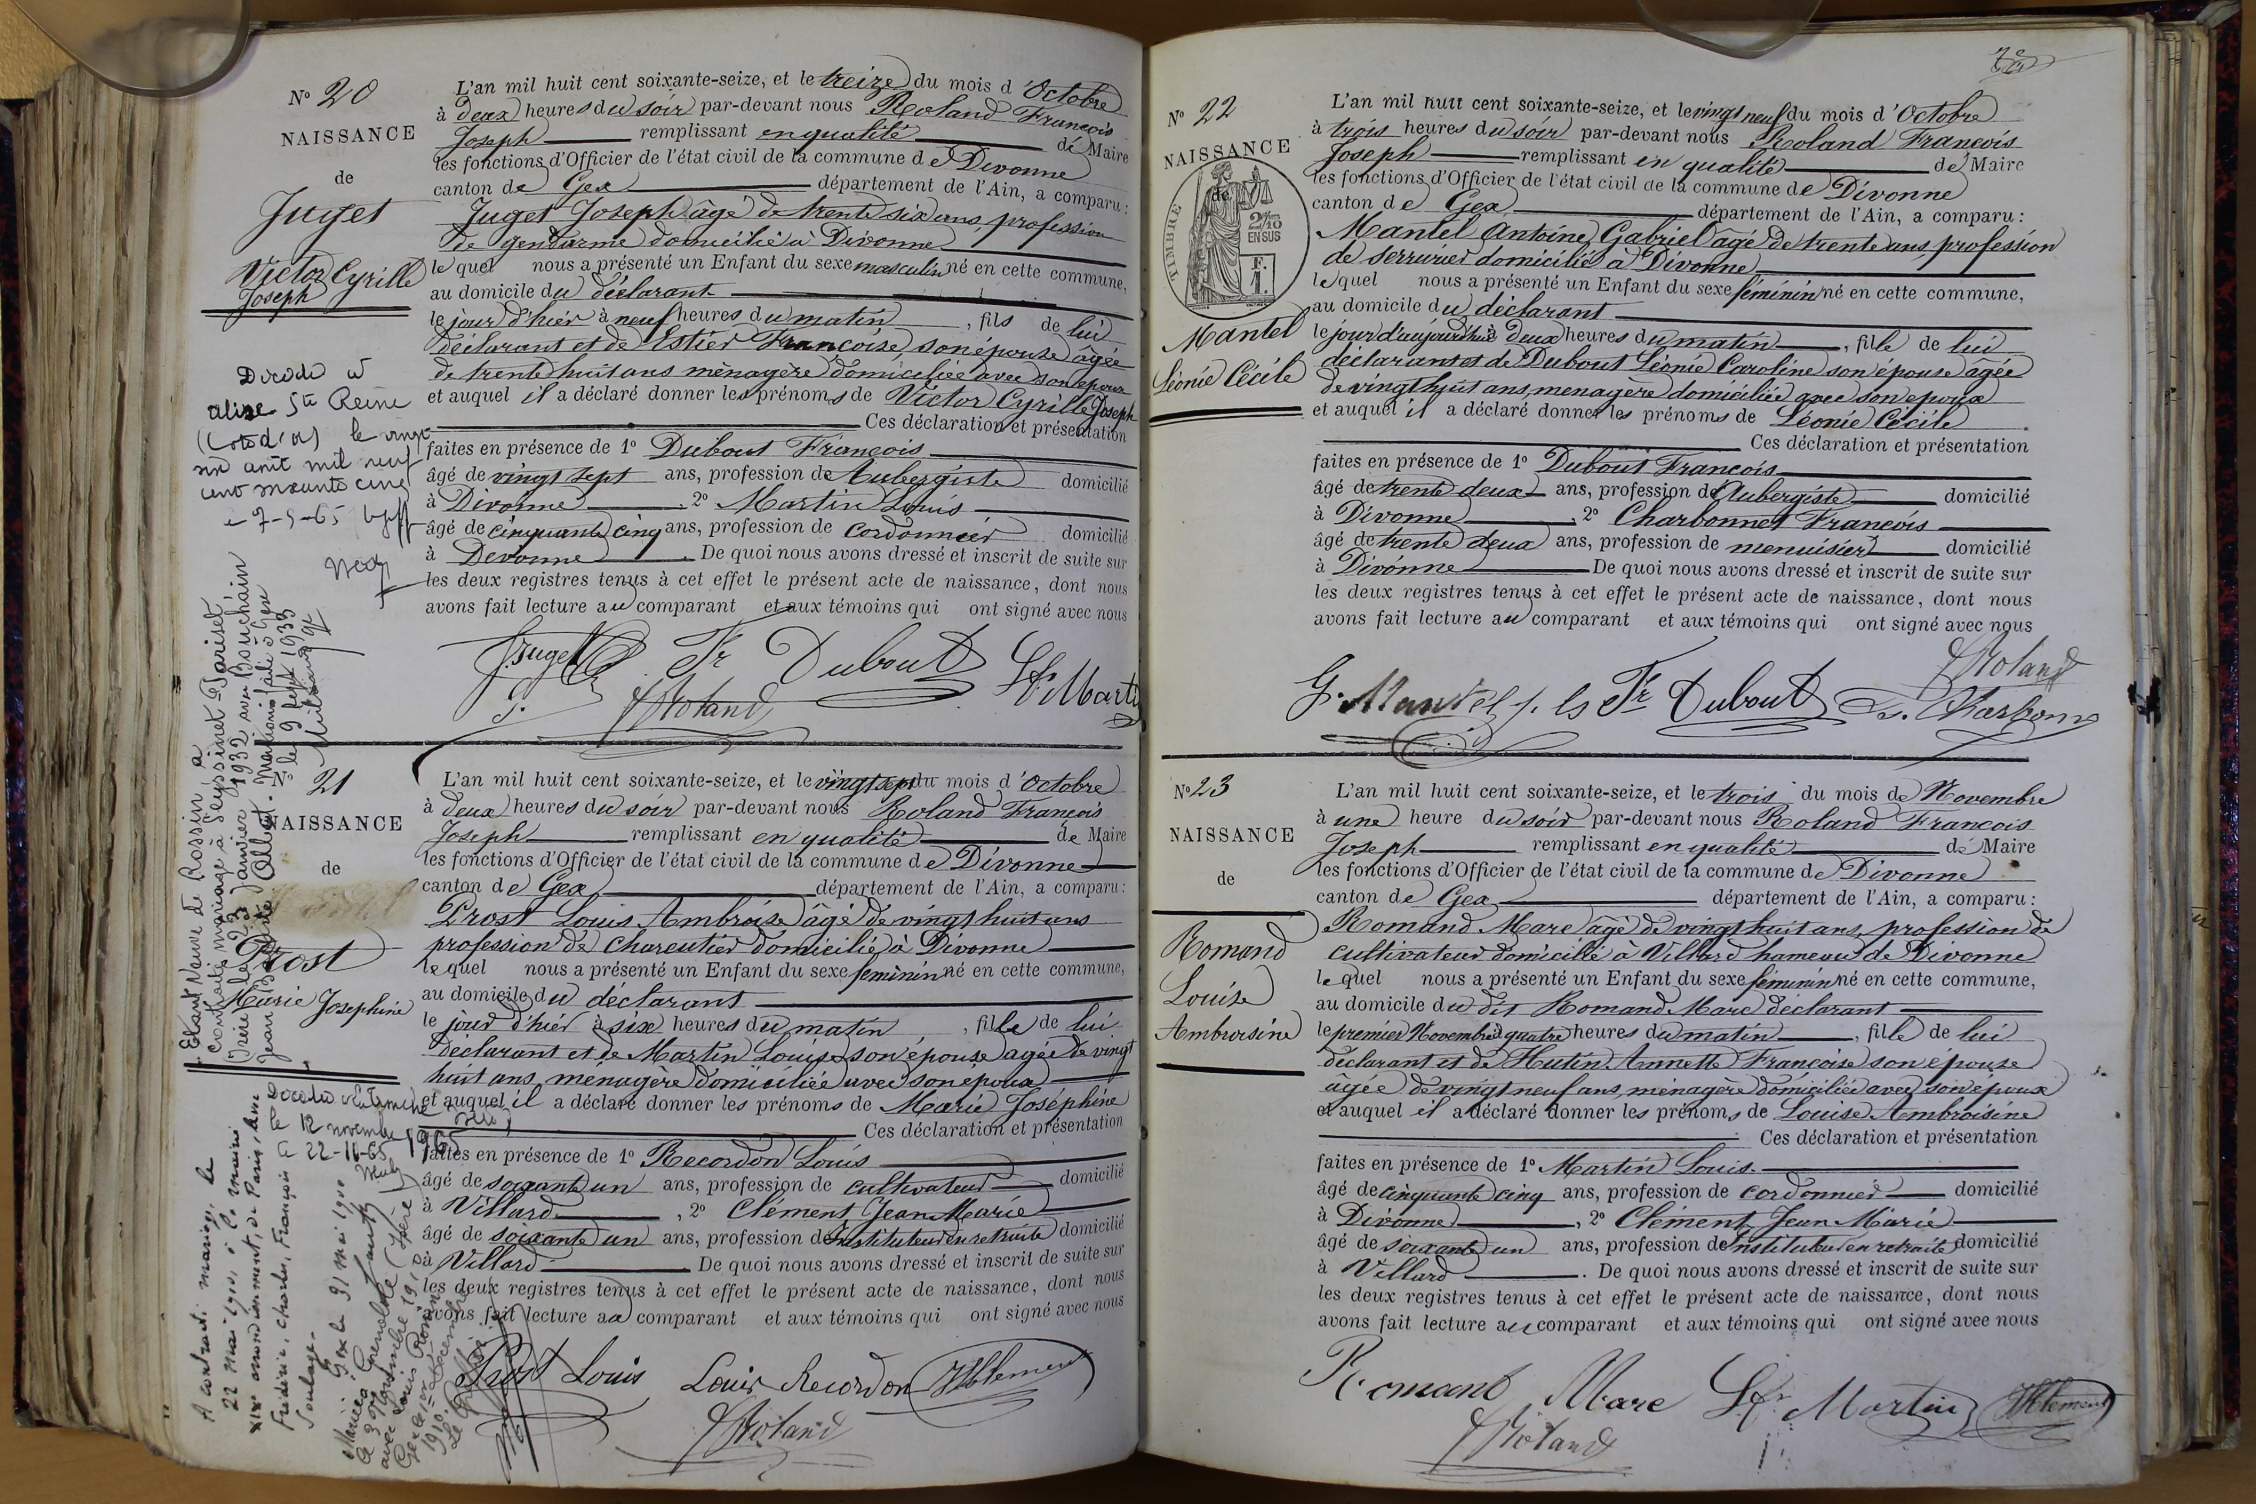 Nº 20
NAISSANCE
de
Juget
Victor Cyrille
Joseph
L'an mil huit cent soixante-seize, et le treize du mois d'Octobre
à deux heures du soir par-devant nous Roland François
Joseph remplissant en qualité de Maire
les fonctions d'Officier de l'état civil de la commune de Divonne
canton de Gex département de l'Ain, a comparu :
Juget Joseph âgé de trente six ans, profession
de gendarme domicilié à Divonne
lequel nous a présenté un Enfant du sexe masculin né en cette commune,
au domicile du déclarant
le jour d'hier à neuf heures du matin, fils de lui
déclarant et de Estier Françoise, son épouse âgée
de trente huit ans ménagère domiciliée avec son époux
et auquel il a déclaré donner les prénoms de Victor Cyrille Joseph
Ces déclaration et présentation
faites en présence de 1º Dubout François
âgé de vingt sept ans, profession de Aubergiste domicilié
à Divonne, 2º Martin Louis
âgé de cinquante cinq ans, profession de cordonnier domicilié
à Devonne. De quoi nous avons dressé et inscrit de suite sur
les deux registres tenus à cet effet le présent acte de naissance, dont nous
avons fait lecture au comparant et aux témoins qui ont signé avec nous
J. Juget Fr Dubout Ls Martin
Roland
Décédé à
Alise Ste Reine
(Cote d'or) le vingt
un août mil neuf
cent soixante cinq
Nº 21
NAISSANCE
de
Prost
Marie Josephine
L'an mil huit cent soixante-seize, et le vingt sept du mois d'Octobre
à deux heures du soir par-devant nous Roland François
Joseph remplissant en qualité de Maire
les fonctions d'Officier de l'état civil de la commune de Divonne
canton de Gex département de l'Ain, a comparu :
Prost Louis Ambroise âgé de vingt huit ans
profession de charcutier domicilié à Divonne
lequel nous a présenté un Enfant du sexe féminin né en cette commune,
au domicile du déclarant
le jour d'hier à six heures du matin, fille de lui
déclarant et de Martin Louise son épouse âgée de vingt
huit ans, ménagère domiciliée avec son époux
et auquel il a déclaré donner les prénoms de Marie Joséphine
Ces déclaration et présentation
faites en présence de 1º Recordon Louis
âgé de soixante un ans, profession de cultivateur domicilié
à Villard, 2º Clément Jean Marie
âgé de soixante un ans, profession de Instituteur en retraite domicilié
à Villard De quoi nous avons dressé et inscrit de suite sur
les deux registres tenus à cet effet le présent acte de naissance, dont nous
avons fait lecture au comparant et aux témoins qui ont signé avec nous
Prost Louis Louis Recordon JMClement
Roland
Etant Veuve de Rossin, a
contracté mariage à Seyssinet-Pariset
Isère le 23 Janvier 1932 avec Bouchain
le 9 sept 1933
le 12 novembre 1965
22-11-65
A contracté mariage, le
22 mai 1900, à la mairie
XIXe arrondissement, de Paris, avec
Frédéric, Charles, François
Soulage.
Gex le 31 mai 1900
Mariée à Grenoble (Isère)
Nº 22
NAISSANCE
de
TIMBRE
2/10
EN SUS
F.
1.
Mantel
Léonie Cécile
L'an mil huit cent soixante-seize, et le vingt neuf du mois d'Octobre
à trois heures du soir par-devant nous Roland François
Joseph remplissant en qualité de Maire
les fonctions d'Officier de l'état civil de la commune de Divonne
canton de Gex département de l'Ain, a comparu :
Mantel Antoine Gabriel âgé de trente ans, profession
de serrurier domicilié à Divonne
lequel nous a présenté un Enfant du sexe féminin né en cette commune,
au domicile du déclarant
le jour d'aujourd'hui à deux heures du matin, fille de lui
déclarant et de Dubout Léonie Caroline son épouse âgée
de vingt huit ans, ménagère domiciliée avec son époux
et auquel il a déclaré donner les prénoms de Léonie Cécile
Ces déclaration et présentation
faites en présence de 1º Dubout François
âgé de trente deux ans, profession de Aubergiste domicilié
à Divonne, 2º Charbonnet François
âgé de trente deux ans, profession de menuisier domicilié
à Divonne De quoi nous avons dressé et inscrit de suite sur
les deux registres tenus à cet effet le présent acte de naissance, dont nous
avons fait lecture au comparant et aux témoins qui ont signé avec nous
Roland
G. Mantel f. ls Fr Dubout
Nº 23
NAISSANCE
de
Romand
Louise
Ambroisine
L'an mil huit cent soixante-seize, et le trois du mois de Novembre
à une heure du soir par-devant nous Roland François
Joseph remplissant en qualité de Maire
les fonctions d'Officier de l'état civil de la commune de Divonne
canton de Gex département de l'Ain, a comparu :
Romand Marc âgé de vingt huit ans, profession de
cultivateur domicilié à Villard hameau de Divonne
lequel nous a présenté un Enfant du sexe féminin né en cette commune,
au domicile du dit Romand Marc déclarant
le premier Novembre à quatre heures du matin, fille de lui
déclarant et de Hutin Annette Françoise son épouse
âgée de vingt neuf ans, ménagère domiciliée avec son époux
et auquel il a déclaré donner les prénoms de Louise Ambroisine
Ces déclaration et présentation
faites en présence de 1º Martin Louis.
âgé de cinquante cinq ans, profession de cordonnier domicilié
à Divonne, 2º Clément Jean Marie
âgé de soixante un ans, profession de Instituteur en retraite domicilié
à Villard. De quoi nous avons dressé et inscrit de suite sur
les deux registres tenus à cet effet le présent acte de naissance, dont nous
avons fait lecture au comparant et aux témoins qui ont signé avec nous
Romand Marc Ls Martin JMClement
Roland